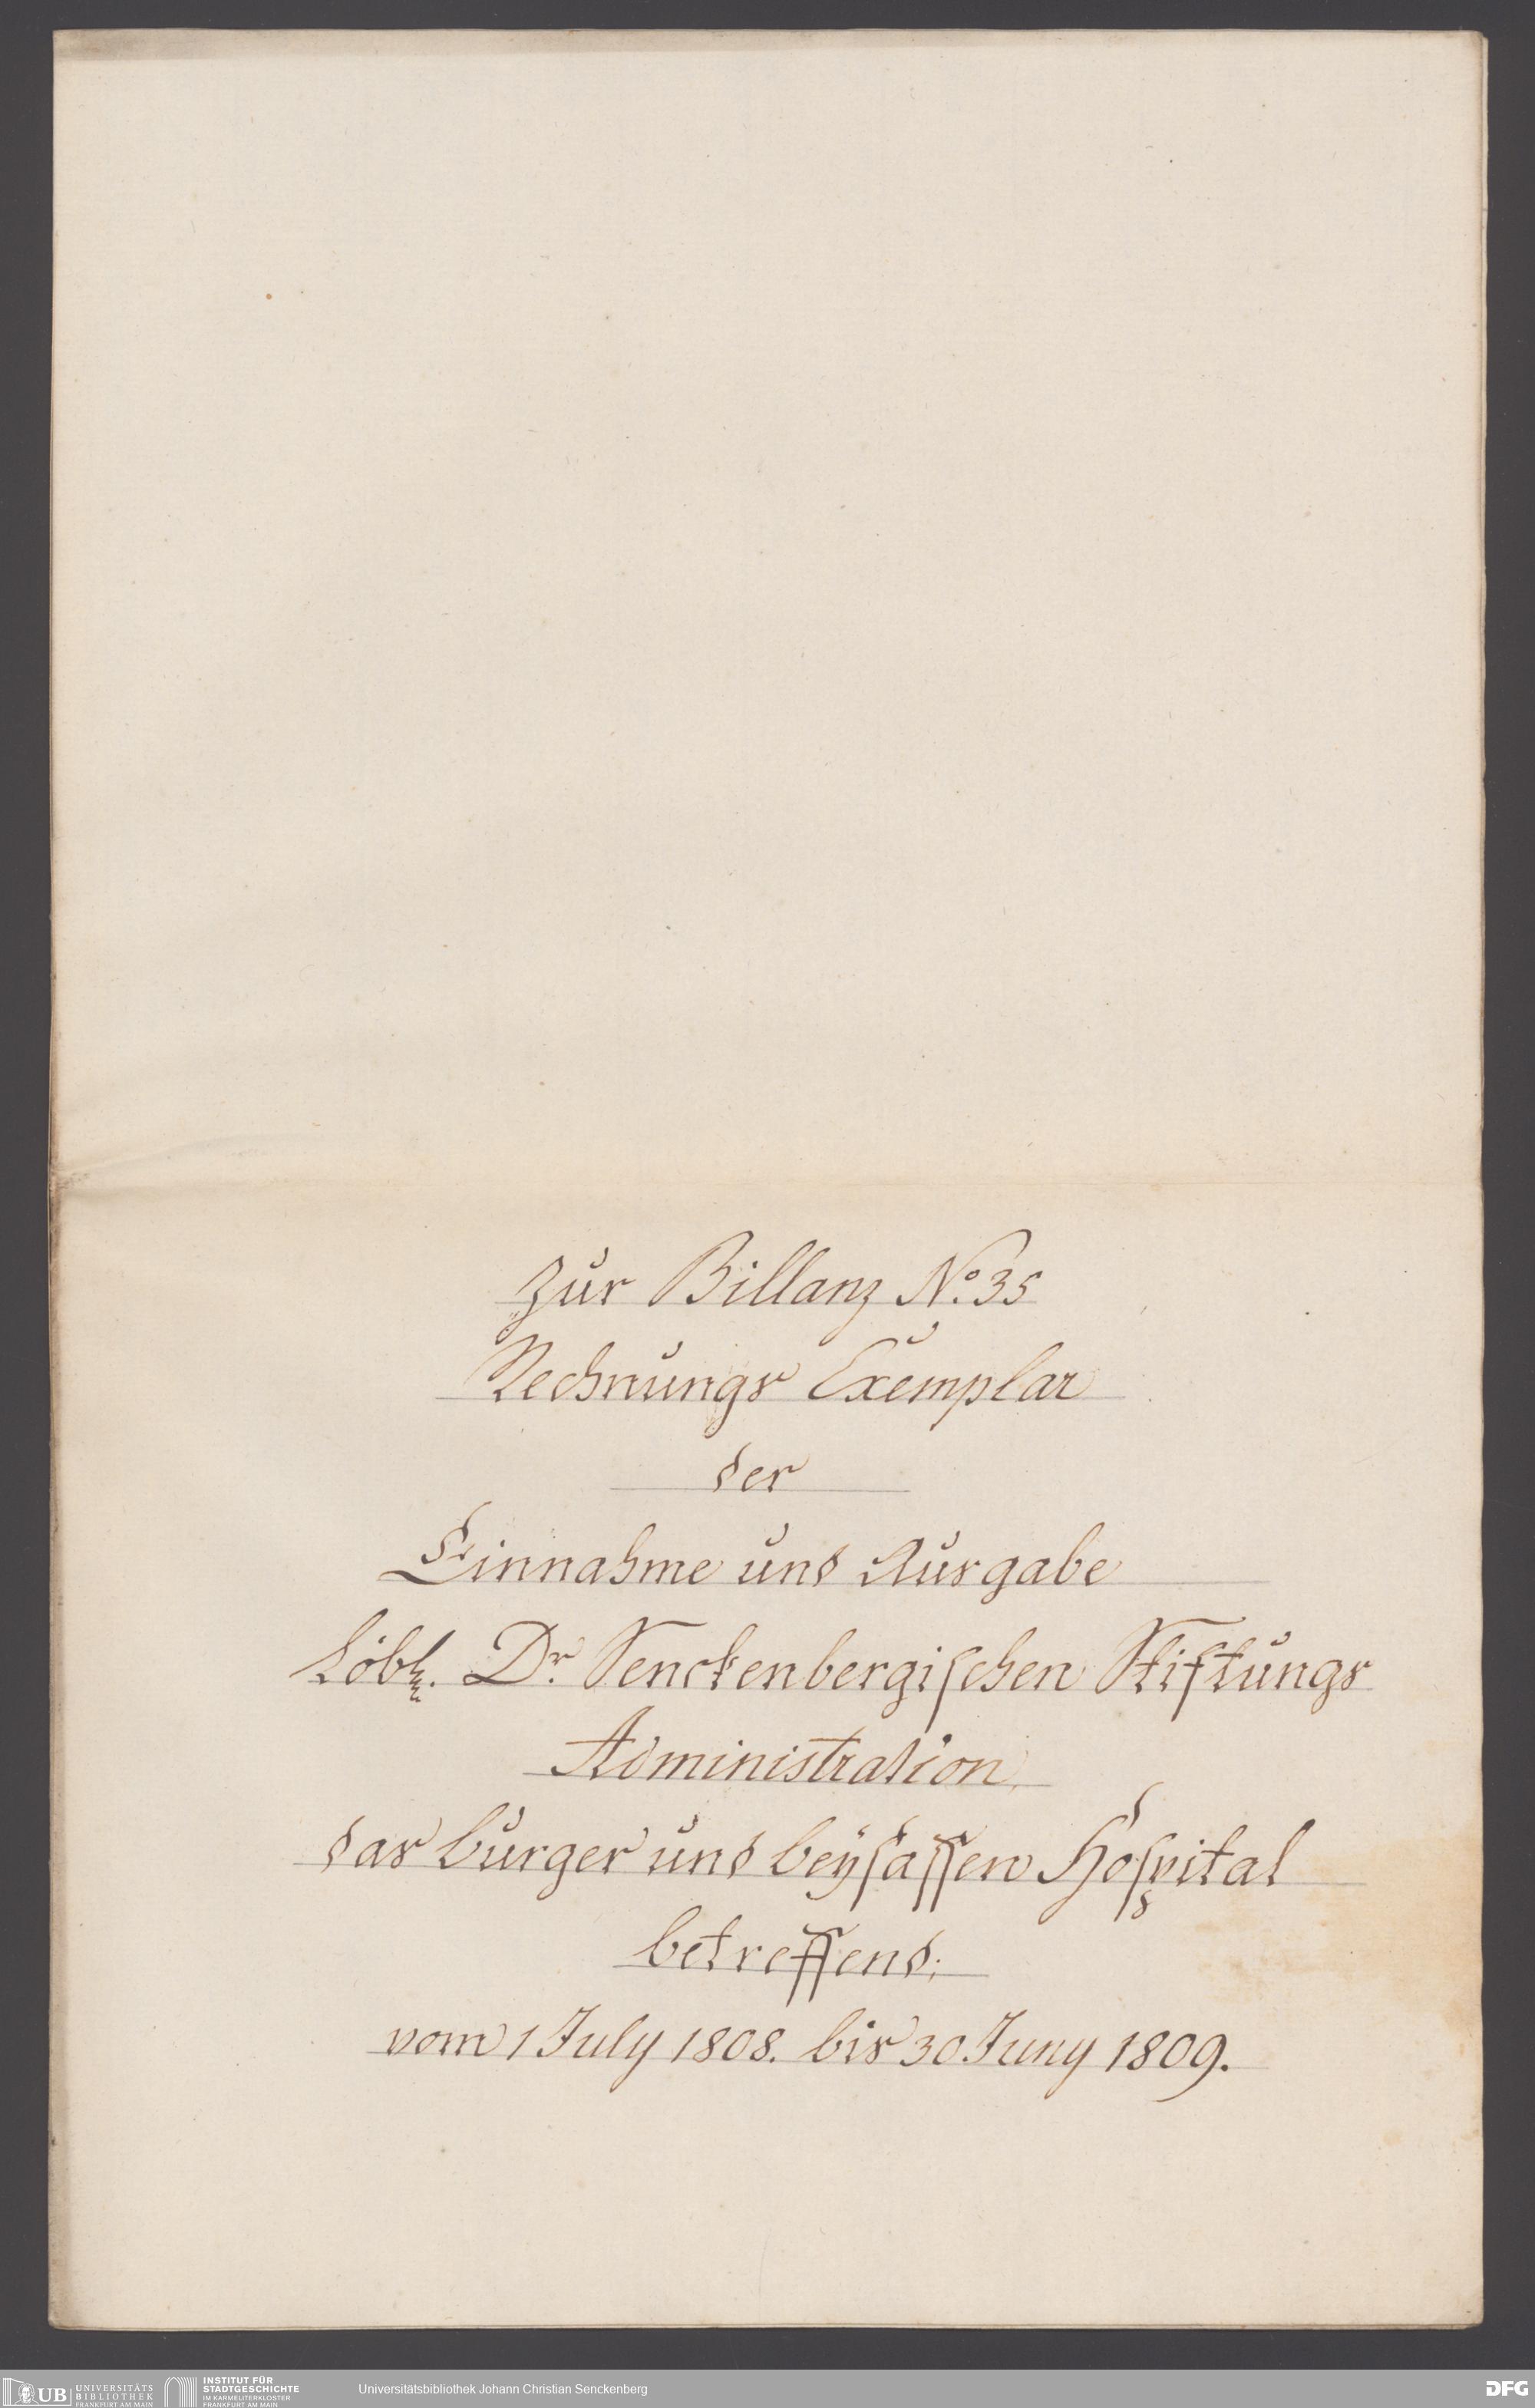 Zur Billanz No. 35
Rechnungs Exemplar
der
Einnahme und Ausgabe
Löbl. Dr. Senckenbergischen Stiftungs
Administration
das burger und beysassen Hospital
betreffend:
vom 1 July 1808. bis 30. Juny 1809.
UB UNIVERSITÄTS
BIBLIOTHEK
FRANKFURT AM MAIN
INSTITUT FÜR
STADTGESCHICHTE
IM KARMELITERKLOSTER
FRANKFURT AM MAIN
Universitätsbibliothek Johann Christian Senckenberg
DFG